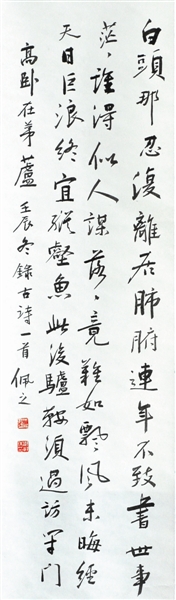 白頭那忍復離居肺腑連年不致書世事
茫々誰得似人謀落々竟難如飄風未晦經
天日巨浪終宜縱壑魚此後驢鞍須過訪門
高卧在茅蘆 壬辰冬錄古詩一首 佩之